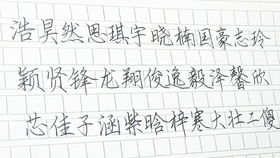 浩昊然思琪宇晓楠国豪志玲
颖贤锋龙翔俊逸毅泽馨欣
芯佳子涵紫晗梓寒大壮二傻